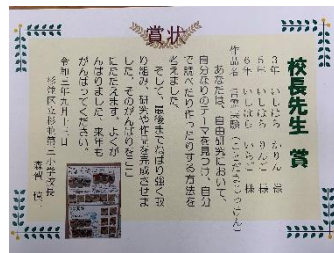 賞状
校長先生 賞
3年 いしはら かりん 様
5年 いしはら りんご 様
6年 いしはら いちご 様
作品名
あなたは、自由研究において、
自分なりのテーマを見つけ、自分
で調べたり作ったりする方法を
考えました。
そして、最後までねばり強く取
り組み、研究や作品を完成させま
した。そのがんばりをここ
にたたえます。よくが
んばりました。来年も
がんばってください。
令和三年九月十三日
杉並区立杉並第三小学校長